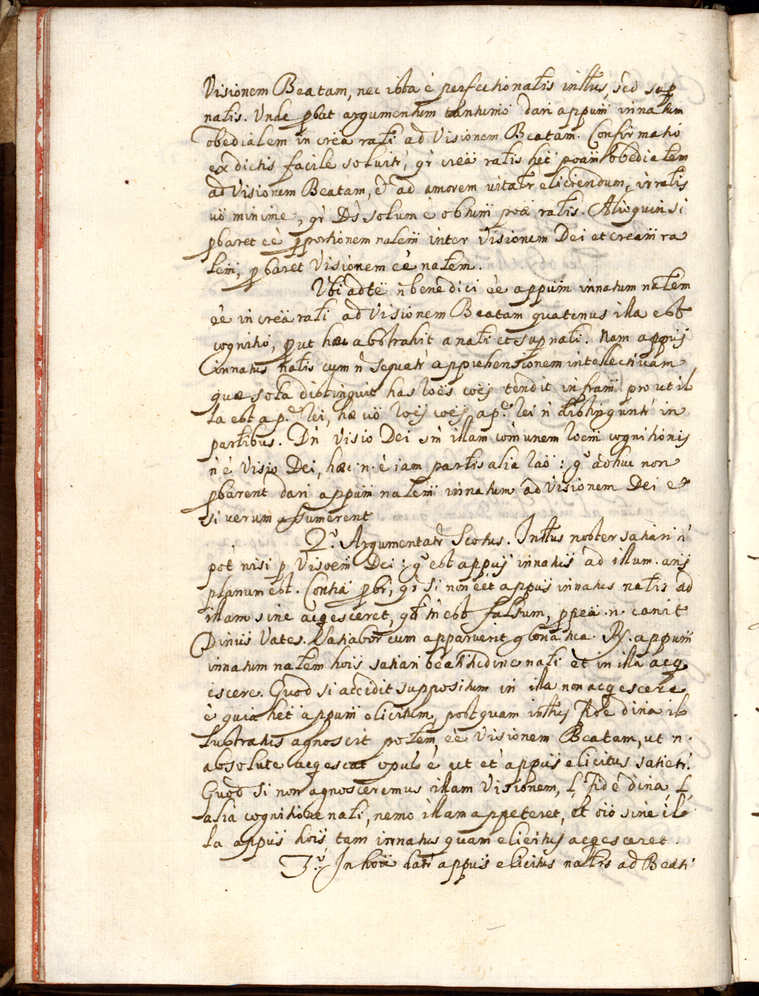 Visionem Beatam, nec ista é perfectionalis intt̃us, sed sup
nalis. Unde pbat argumentum tantumõ dari appum innatum
obedialem in creã rali ad Visionem Beatam. Confirmatio
ex dictis facile soluitr, qr creã ralis het poam obedialem
ad Visionem Beatam, et ad amorem vitalr eliciendum, irralis
uõ minime, qr Ds solum é obtum poæ ralis. Alioquin si
pbaret eé pportionem nalem inter Visionem Dei et cream ra
lem, pbaret Visionem eé nalem.
Ubi adte n bene dici eé appum innatum nalem
eé in creã rali ad Visionem Beatam quatenus illa est
cognitio, put hæc abstrahit a nali et supnali. Nam appus
innatus nalis cum n sequatr apprehensionem intellectiuam
quæ sola distinguit has loes coes tendit in fram prout il
la est a p.e rei, hæ uõ loes coes a p.e rei n distinguntr in
partibus. Dn Visio Dei sn illam comunem loem cognitionis
n é Visio Dei, hæc n. é iam partis alia lao: g.o adhuc non
pbarent dari appum nalem innatum ad Visionem Dei et
si uerum assumerent
2.o Argumentatr Scotus. Inttus noster satiari n
pot nisi p Visoem Dei: g.o est appus innatus ad illum. ans
planum est. Contia pbr, qr si non eet appus innatus nalis ad
illam sine acqesceret, qd tn est falsum, pptea n. canit
Dinus Vates. Satiabor cum apparuerit gloria tua. R. appum
innatum nalem hois satiari beatitudine nali et in illa acq
escere. Quod si accidit suppositum in illa non acqescere
é quia het appum elicitum, postquam inttus fide dina il
lustratus agnoscit polem eé Visionem Beatam, ut n.
absolute acqescat opus é ut et appus elicitus satietr.
Quod si non agnosceremus illam Visionem, l fide dina l
alia cognitione nali, nemo illam appeteret, et oio sine il
la appus hois tam innatus quam elicitus acqesceret.
3.o In hoie datr appus elicitus nalis ad Beati